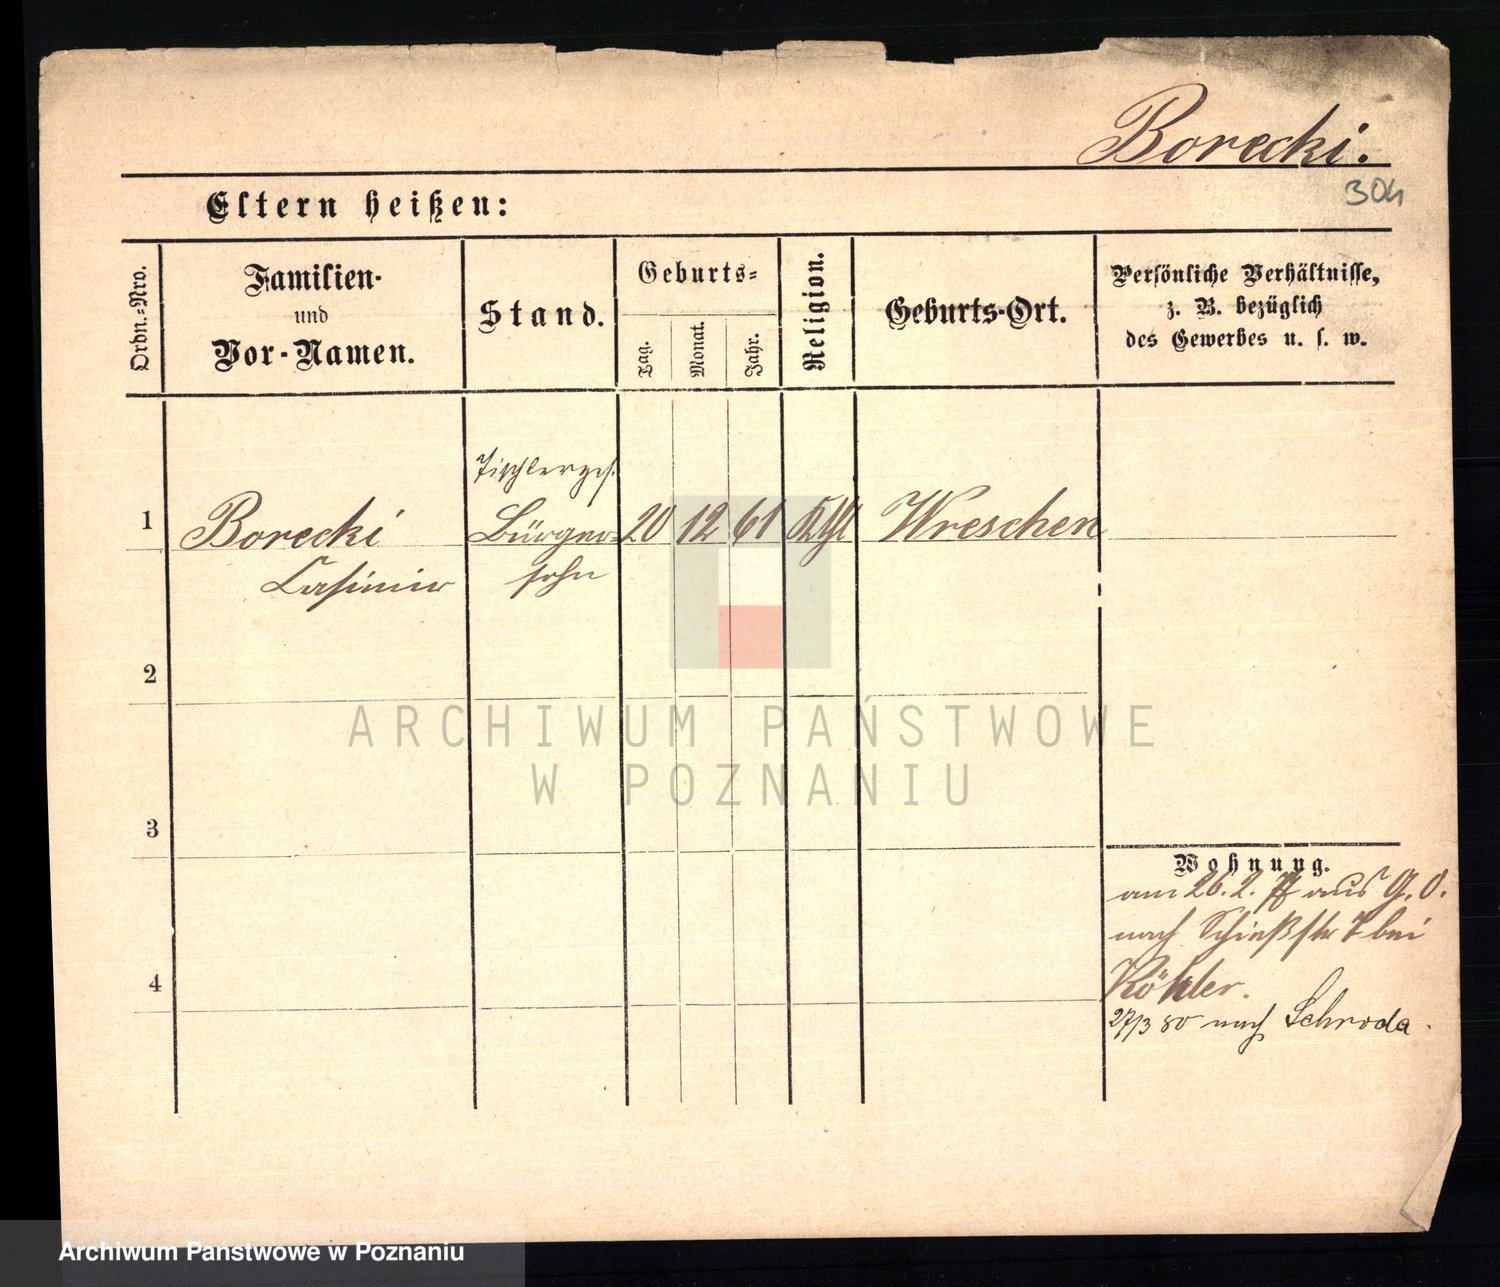 Borecki.
304
Eltern heißen:
Ordn.-Nro.
Familien-
und
Vor-Namen.
Stand.
Geburts-
Tag.
Monat.
Jahr.
Religion.
Geburts-Ort.
Persönliche Verhältnisse,
z. B. bezüglich
des Gewerbes u. s. w.
Tischlerges.
1 Borecki Bürger- 20 12 61 Kth Wreschen
Casimir sohn
2
3
4
Wohnung.
am 26. 2. aus G. O.
nach Schießstr 7 bei
Köhler.
27/3 80 nach Schroda.
ARCHIWUM PAŃSTWOWE
W POZNANIU
Archiwum Państwowe w Poznaniu